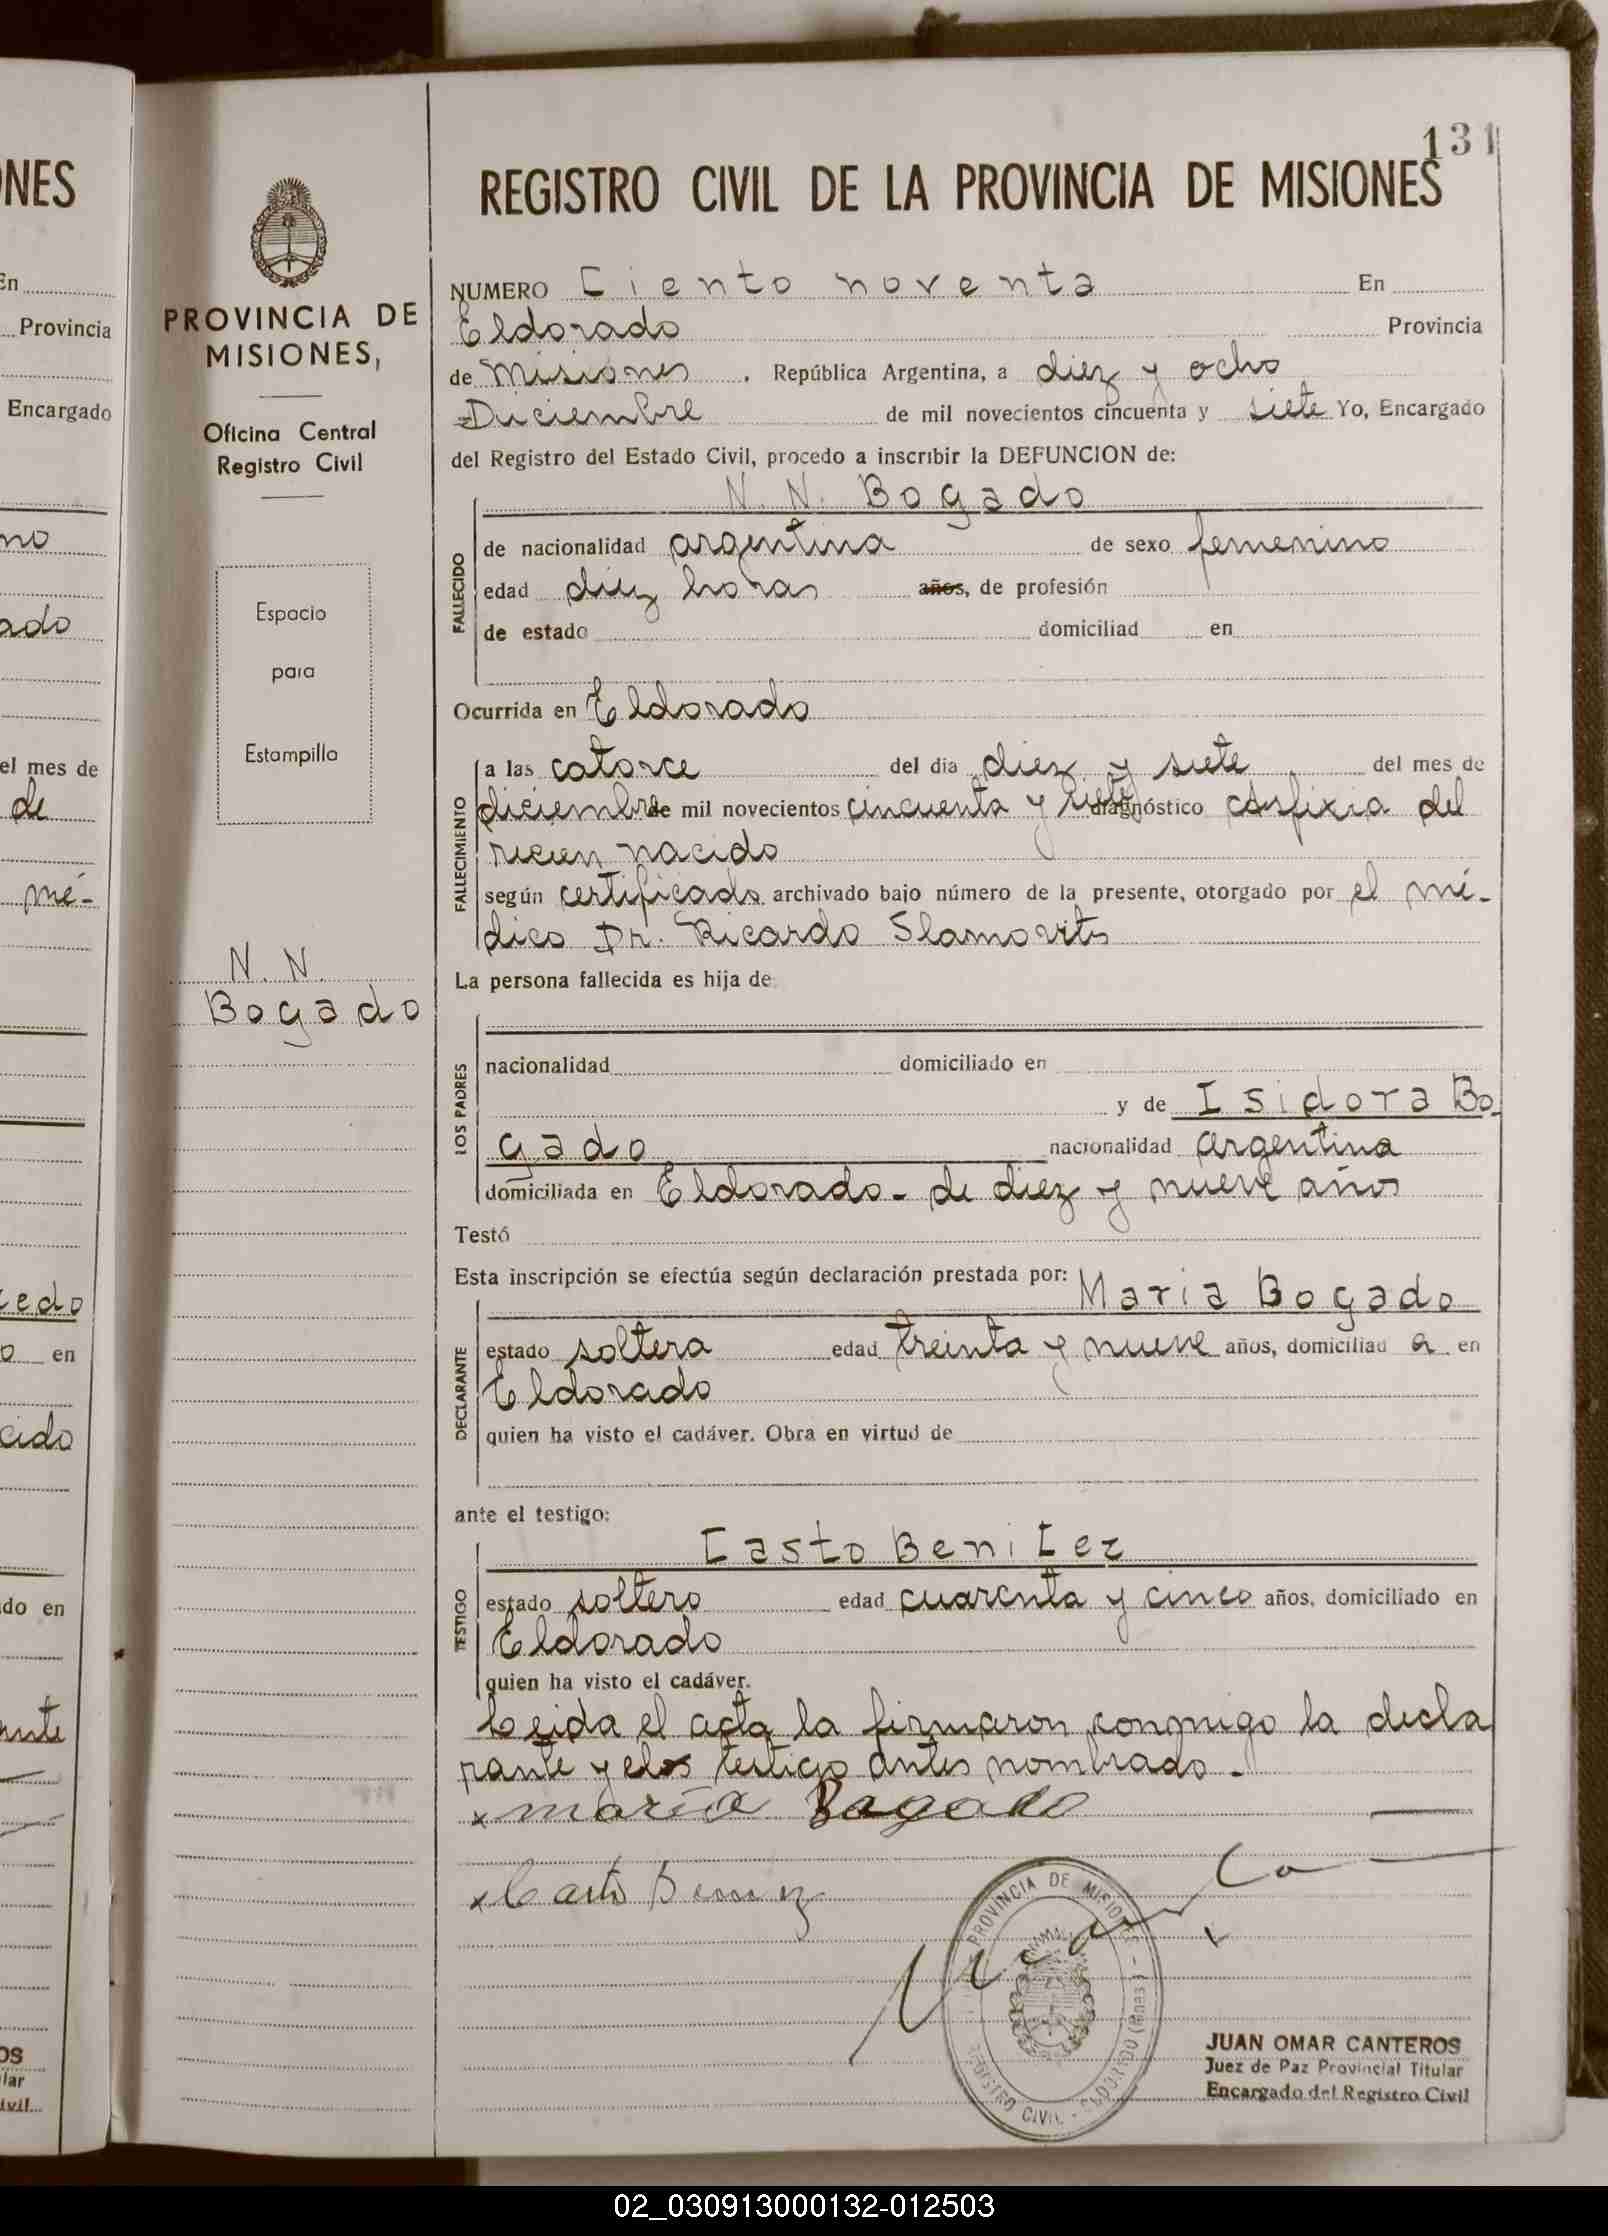 131
REGISTRO CIVIL DE LA PROVINCIA DE MISIONES
NUMERO Ciento noventa En
Eldorado Provincia
de Misiones, República Argentina, a diez y ocho
Diciembre de mil novecientos cincuenta y siete Yo, Encargado
del Registro del Estado Civil, procedo a inscribir la DEFUNCION de:
N. N. Bogado
FALLECIDO
de nacionalidad argentina de sexo femenino
edad diez horas años, de profesión
de estado domiciliad en
Ocurrida en Eldorado
FALLECIMIENTO
a las catorce del dia diez y siete del mes de
diciembre de mil novecientos cincuenta y siete diagnóstico asfixia del
recien nacido
según certificado archivado bajo número de la presente, otorgado por el mé-
dico Dr. Ricardo Slamovits
La persona fallecida es hija de
LOS PADRES
nacionalidad domiciliado en
y de Isidora Bo-
gado nacionalidad argentina
domiciliada en Eldorado - de diez y nueve años
Testó
Esta inscripción se efectúa según declaración prestada por:
Maria Bogado
DECLARANTE
estado soltera edad treinta y nueve años, domiciliad a en
Eldorado
quien ha visto el cadáver. Obra en virtud de
ante el testigo:
Casto Benitez
TESTIGO
estado soltero edad cuarenta y cinco años, domiciliado en
Eldorado
quien ha visto el cadáver.
Leida el acta la firmaron conmigo la decla
rante y el testigo antes nombrado.-
x maria Bogado
x Casto Benitez
PROVINCIA DE MISIONES - ELDORADO (Mnes) - REGISTRO CIVIL
JUAN OMAR CANTEROS
Juez de Paz Provincial Titular
Encargado del Registro Civil
PROVINCIA DE
MISIONES,
Oficina Central
Registro Civil
Espacio
para
Estampilla
N. N.
Bogado
ONES
En
Provincia
Encargado
no
ado
el mes de
de
mé-
cedo
o en
cido
do en
02_030913000132-012503